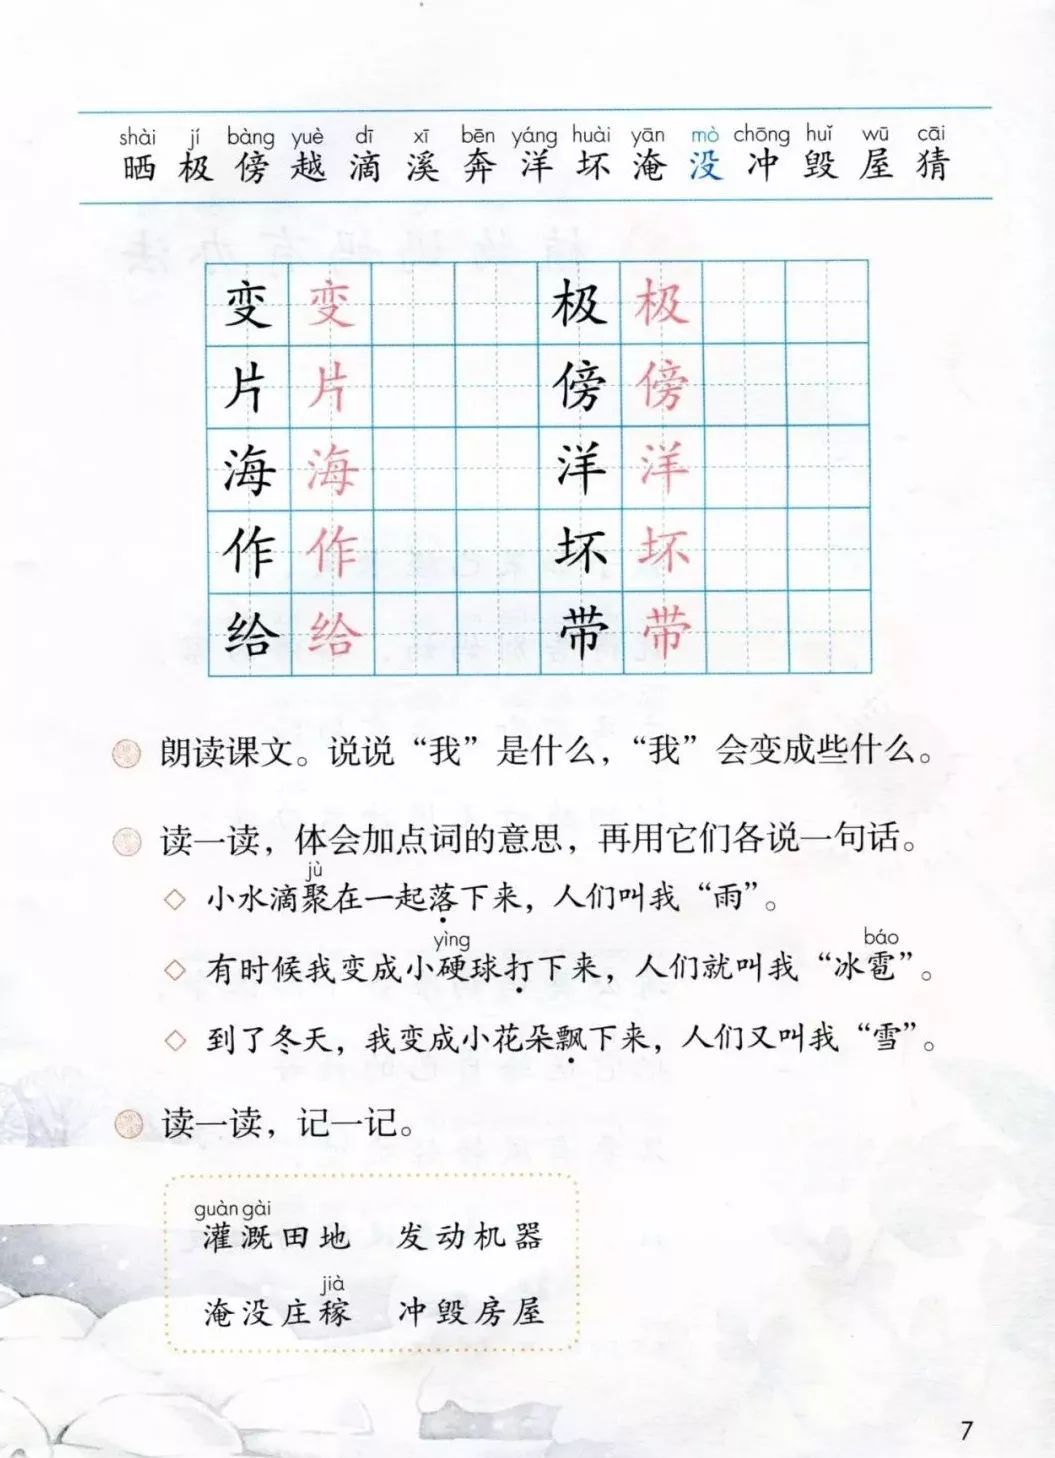 shài jí bàng yuè dī xī bēn yáng huài yān mò chōng huǐ wū cāi
晒 极 傍 越 滴 溪 奔 洋 坏 淹 没 冲 毁 屋 猜
变 变 极 极
片 片 傍 傍
海 海 洋 洋
作 作 坏 坏
给 给 带 带
朗读课文。说说“我”是什么，“我”会变成些什么。
读一读，体会加点词的意思，再用它们各说一句话。
jù
小水滴聚在一起落下来，人们叫我“雨”。
yìng báo
有时候我变成小硬球打下来，人们就叫我“冰雹”。
到了冬天，我变成小花朵飘下来，人们又叫我“雪”。
读一读，记一记。
guàn gài
灌溉田地 发动机器
jià
淹没庄稼 冲毁房屋
7